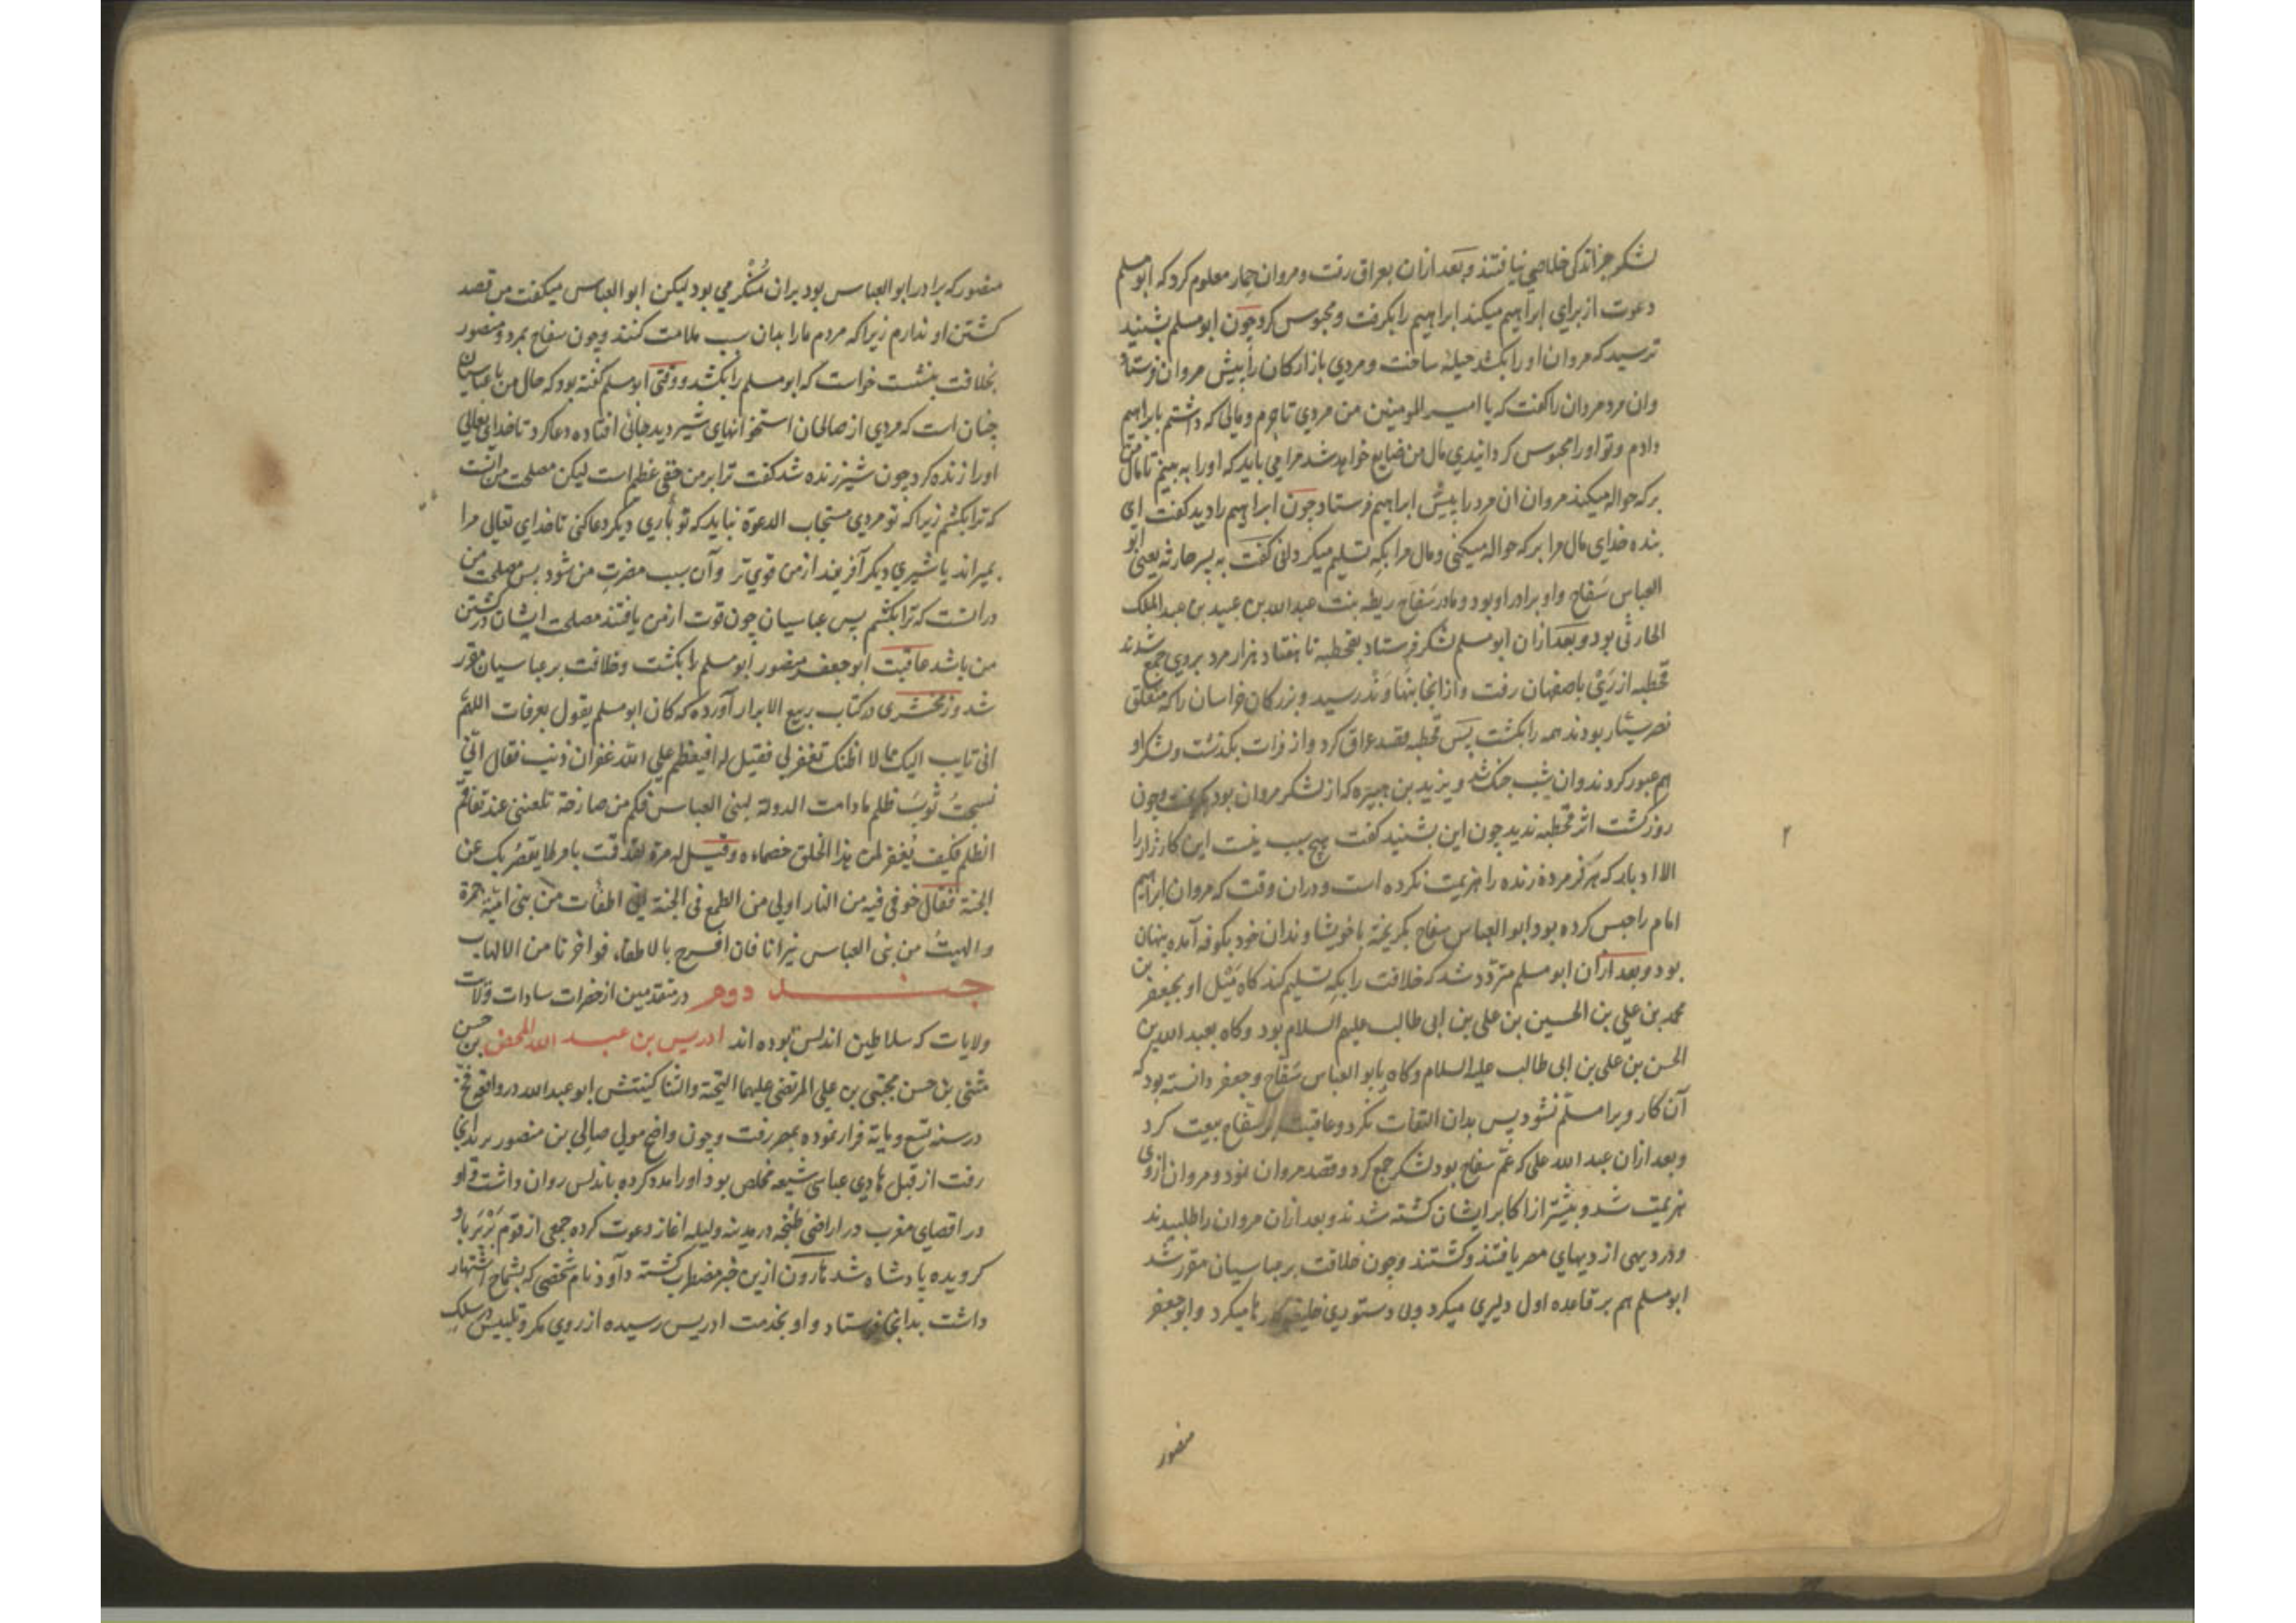 لشکر جز اندکی خلاصی نیافتند و بعد ازان بعراق رفت و مروان حمار معلوم کرد که ابو مسلم
دعوت از برای ابراهیم میکند ابراهیم را بکرفت و محبوس کرد چون ابو مسلم بشنید
ترسید که مروان او را بکشد حیلهٔ ساخت و مردی بازارکان را پیش مروان فرستاد
وان مرد مروان را کفت که یا امیر المومنین من مردی تاجرم و مالی که داشتم بابراهیم
دادم و تو او را محبوس کردانیدی مال من ضایع خواهد شد مرا می باید که او را به بینم تا مال من
برکه حواله میکند مروان ان مرد را پیش ابراهیم فرستاد چون ابراهیم را دید کفت ای
بنده خدای مال مرا برکه حواله میکنی و مال مرا بکه تسلیم میکردانی کفت به پسر حارثه یعنی ابو
العباس سفاح و او برادر او بود و مادر سفاح ریطه بنت عبدالله بن عبید بن عبدالملک
الحارثی بود و بعد ازان ابو مسلم لشکر فرستاد بقحطبه تا هفتاد هزار مرد بروی جمع شدند
قحطبه از ری باصفهان رفت و از انجا بنهاوند رسید و بزرکان خراسان را که متعلق
نصر سیار بودند همه را بکشت پس قحطبه قصد عراق کرد و از فرات بکذشت و لشکر او
هم عبور کردند و ان شب جنک شد و یزید بن هبیره که از لشکر مروان بود بکریخت و چون
روز کشت اثر قحطبه ندید چون این بشنید کفت هیچ سبب نیست این کارزار را
الا ادبار که هرکز مرده زنده را هزیمت نکرده است و دران وقت که مروان ابراهیم
امام را حبس کرده بود ابو العباس سفاح بکریخته با خویشاوندان خود بکوفه آمده پنهان
بود و بعد ازان ابو مسلم متردد شد که خلافت را بکه تسلیم کند کاه میل او بجعفر بن
محمد بن علی بن الحسین بن علی بن ابی طالب علیهم السلام بود و کاه بعبد الله بن
الحسن بن علی بن ابی طالب علیه السلام و کاه بابو العباس سفاح و جعفر دانسته بود که
آن کار ویرا مسلم نشود پس بدان التفات نکرد و عاقبت با سفاح بیعت کرد
و بعد ازان عبد الله علی که عم سفاح بود لشکر جمع کرد و قصد مروان نمود و مروان ازوی
هزیمت شد و بیشتر از اکابر ایشان کشته شدند و بعد ازان مروان را طلبیدند
و در دیهی از دیهای مصر یافتند و کشتند و چون خلافت بر عباسیان مقرر شد
ابو مسلم هم بر قاعده اول دلیری میکرد و بی دستوری خلیفه کارها میکرد و ابو جعفر
منصور
منصور که برادر ابو العباس بود بران منکر می بود لیکن ابو العباس میکفت من قصد
کشتن او ندارم زیرا که مردم ما را بدان سبب ملامت کنند و چون سفاح بمرد و منصور
بخلافت بنشست خواست که ابو مسلم را بکشد و وقتی ابو مسلم کفته بود که حال من با عباسیان
چنان است که مردی از صالحان استخوانهای شیر دید جائی افتاده دعا کرد تا خدای تعالی
او را زنده کرد چون شیر زنده شد کفت ترا بر من حقی عظیم است لیکن مصلحت من آنست
که ترا بکشم زیرا که تو مردی مستجاب الدعوة نباید که تو باری دیکر دعا کنی تا خدای تعالی مرا
بمیراند یا شیری دیکر آفریند از من قوی تر و آن سبب مضرت من شود پس مصلحت من
درانست که ترا بکشم پس عباسیان چون قوت از من یافتند مصلحت ایشان در کشتن
من باشد عاقبت ابو جعفر منصور ابو مسلم را بکشت و خلافت بر عباسیان مقرر
شد و زمخشری در کتاب ربیع الابرار آورده که کان ابو مسلم یقول بعرفات اللهم
انی تایب الیک مما لا اظنک تغفر لی فقیل له افیعظم علی الله غفران ذنب فقال انی
نسجت ثوب ظلم ما دامت الدولة لبنی العباس فکم من صارخة تلعننی عند تفاقم
الظلم فکیف یغفر لمن هذا الخلق خصماءه و قیل له مرة لقد قمت بامر لا یقصر بک عن
الجنة فقال خوفی فیه من النار اولی من الطمع فی الجنة انی اطفأت من بنی امیة جمرة
و الهبت من بنی العباس نیرانا فان افرح بالاطفاء فواحزنا من الالهاب
جند دوم در متقدمین از حضرات سادات و ولات
ولایات که سلاطین اندلس بوده اند ادریس بن عبد الله المحض بن حسن
مثنی بن حسن مجتبی بن علی المرتضی علیهما التحیة والثنا کنیتش ابو عبدالله در واقعه فخ
در سنه تسع و مایة فرار نموده بمصر رفت و چون واضح مولی صالح بن منصور برید انجا
رفت از قبل هادی عباسی شیعه مخلص بود او را مدد کرده باندلس روان داشت و او
در اقصای مغرب در اراضی طنجه در مدینه ولیله اغاز دعوت کرده جمعی از قوم بربر باو
کرویده پادشاه شد هارون ازین خبر مضطرب کشته داود نام شخصی که بشماخ اشتهار
داشت بدانجا فرستاد و او بخدمت ادریس رسیده از روی مکر و تلبیس در سلک